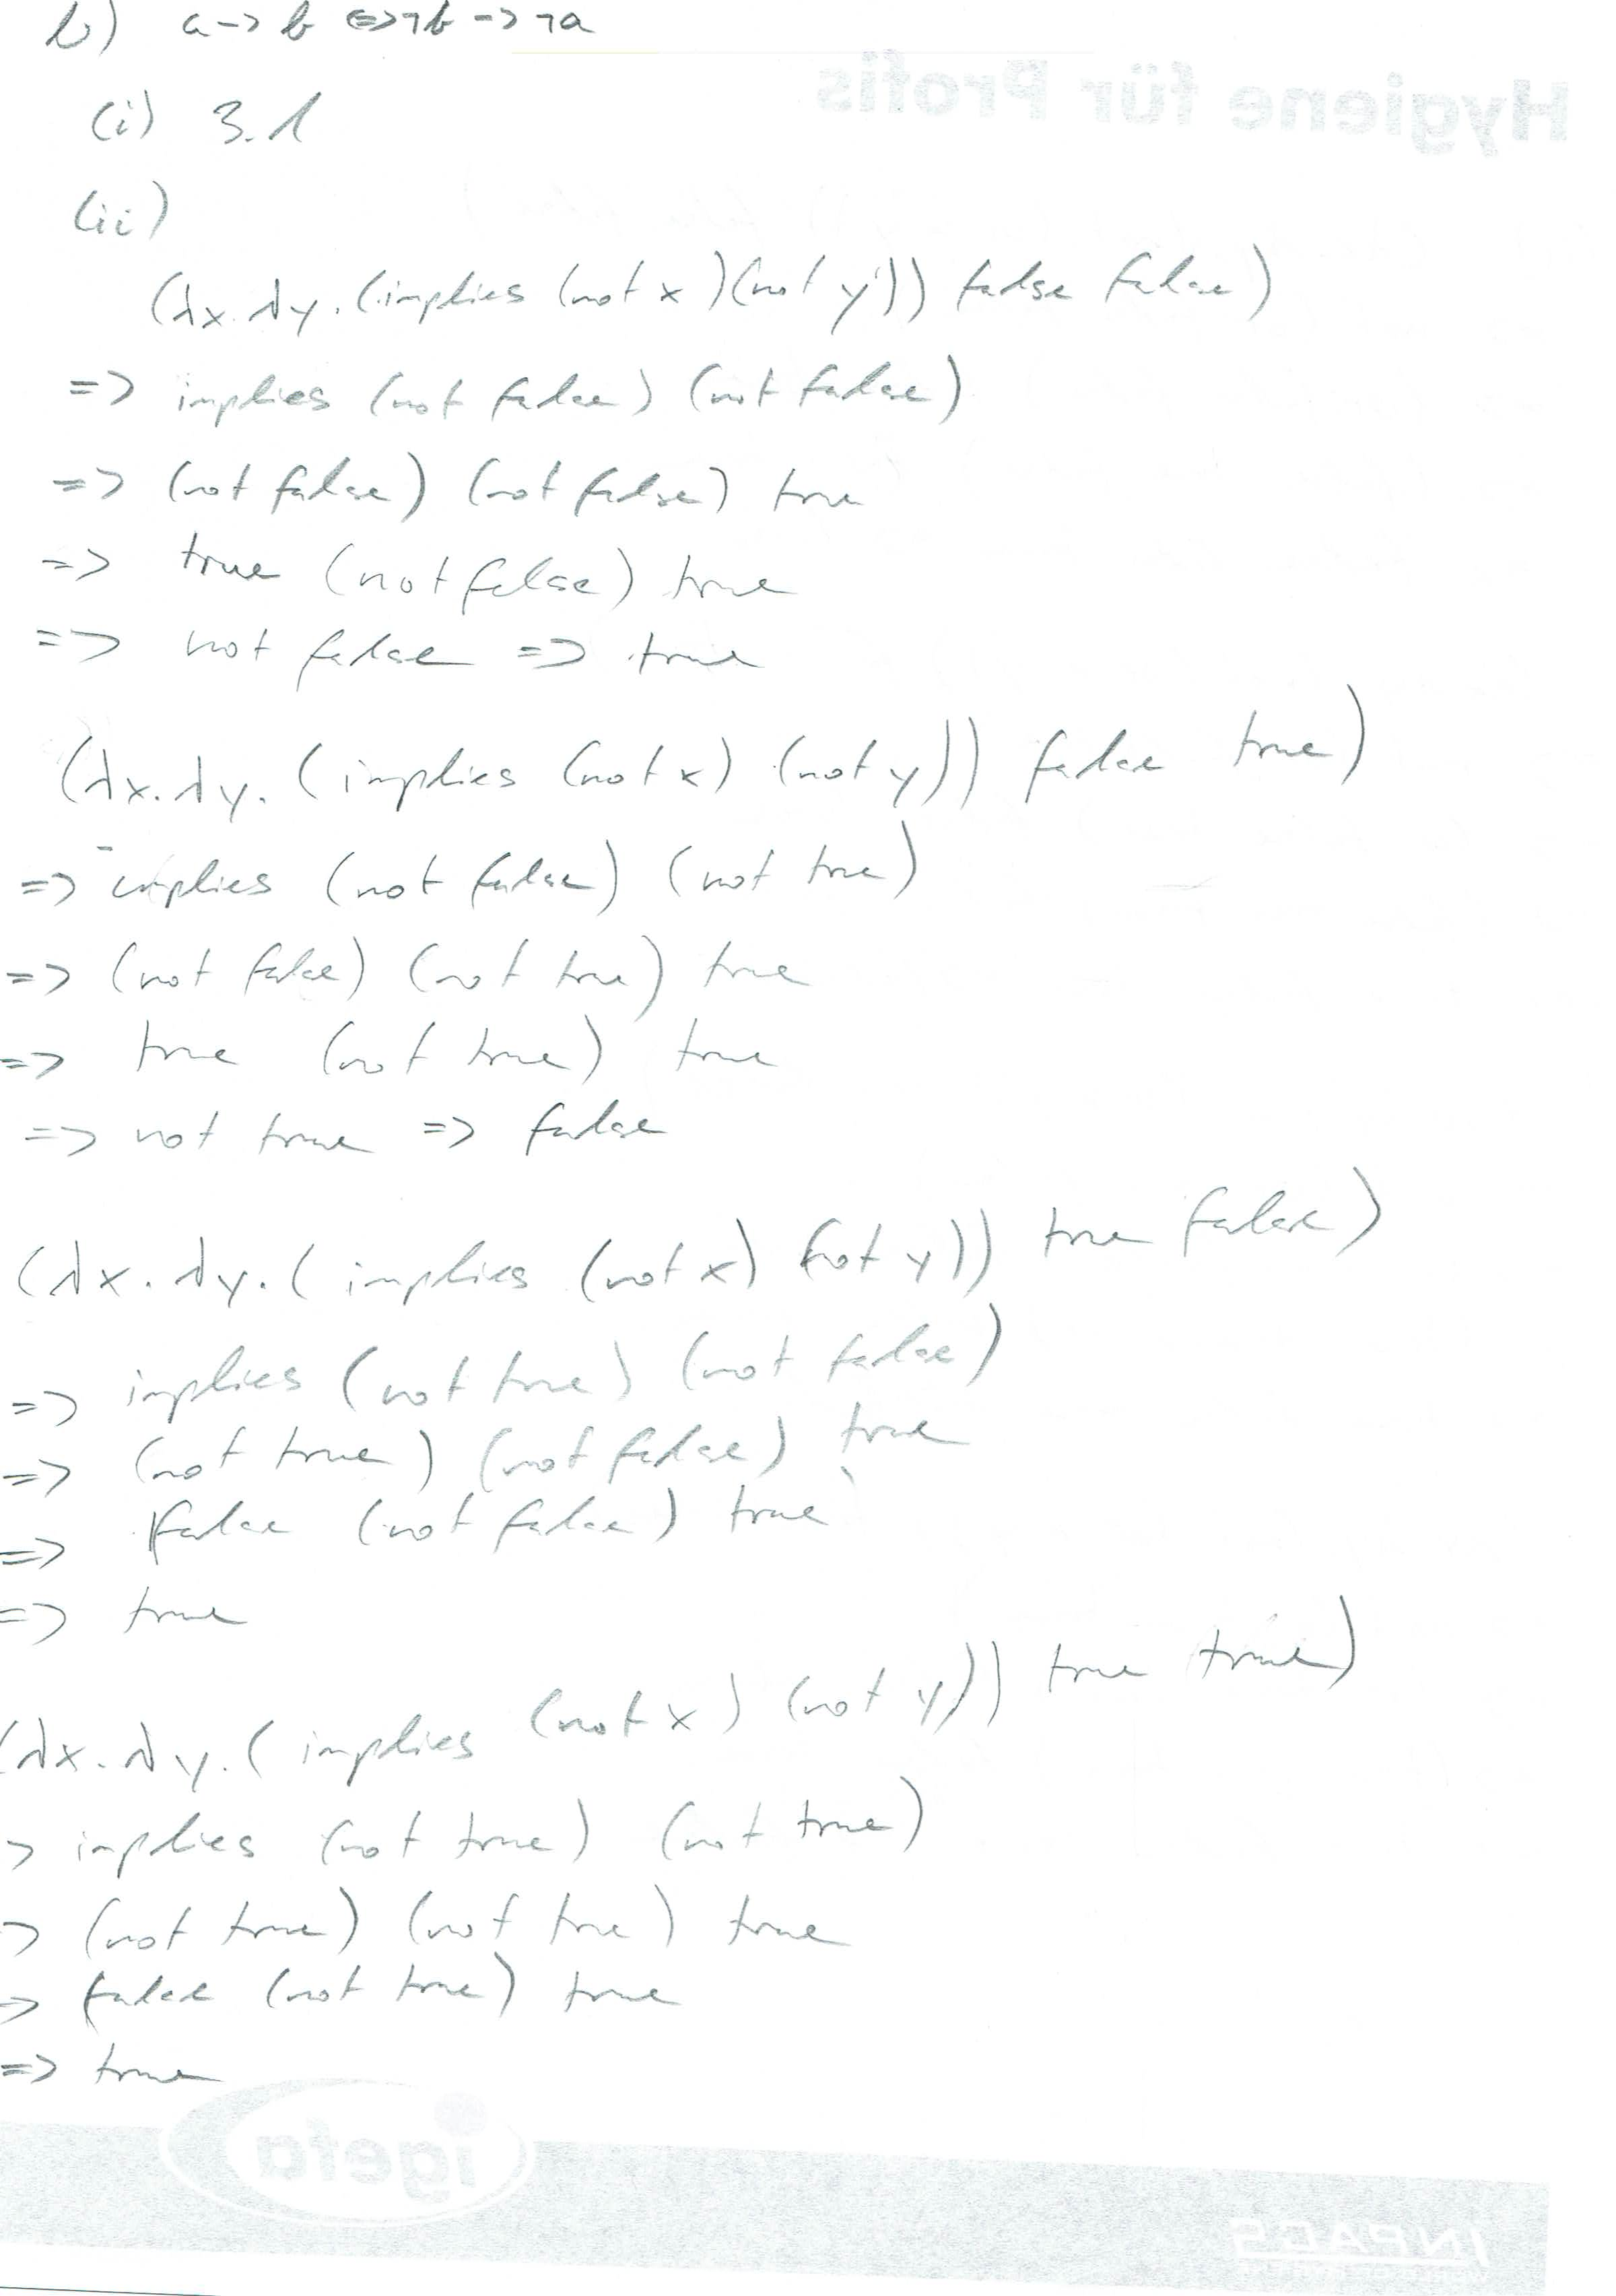 b) a -> b <=> ¬b -> ¬a
Hygiene für Profis
(i) 3.1
(ii)
(λx.λy.(implies (not x)(not y)) false false)
=> implies (not false) (not false)
=> (not false) (not false) true
=> true (not false) true
=> not false => true
(λx.λy.(implies (not x) (not y)) false true)
=> implies (not false) (not true)
=> (not false) (not true) true
=> true (not true) true
=> not true => false
(λx.λy.(implies (not x) (not y)) true false)
=> implies (not true) (not false)
=> (not true) (not false) true
=> false (not false) true
=> true
(λx.λy.(implies (not x) (not y)) true true)
> implies (not true) (not true)
=> (not true) (not true) true
=> false (not true) true
=> true
igefa
INPACS